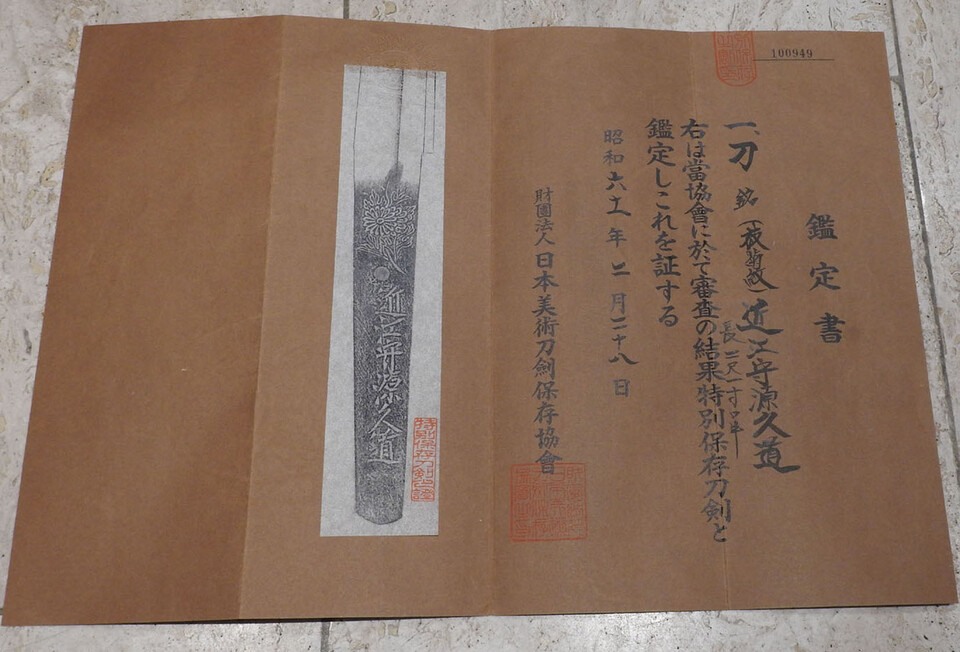 100949
鑑定書
一、刀 銘(枝菊紋)近江守源久道
長二尺一寸
右は當協會に於て審査の結果特別保存刀剣と
鑑定しこれを証する
昭和六十一年二月二十八日
財團法人日本美術刀劍保存協會
近江守源久道
特別保存刀剣之證